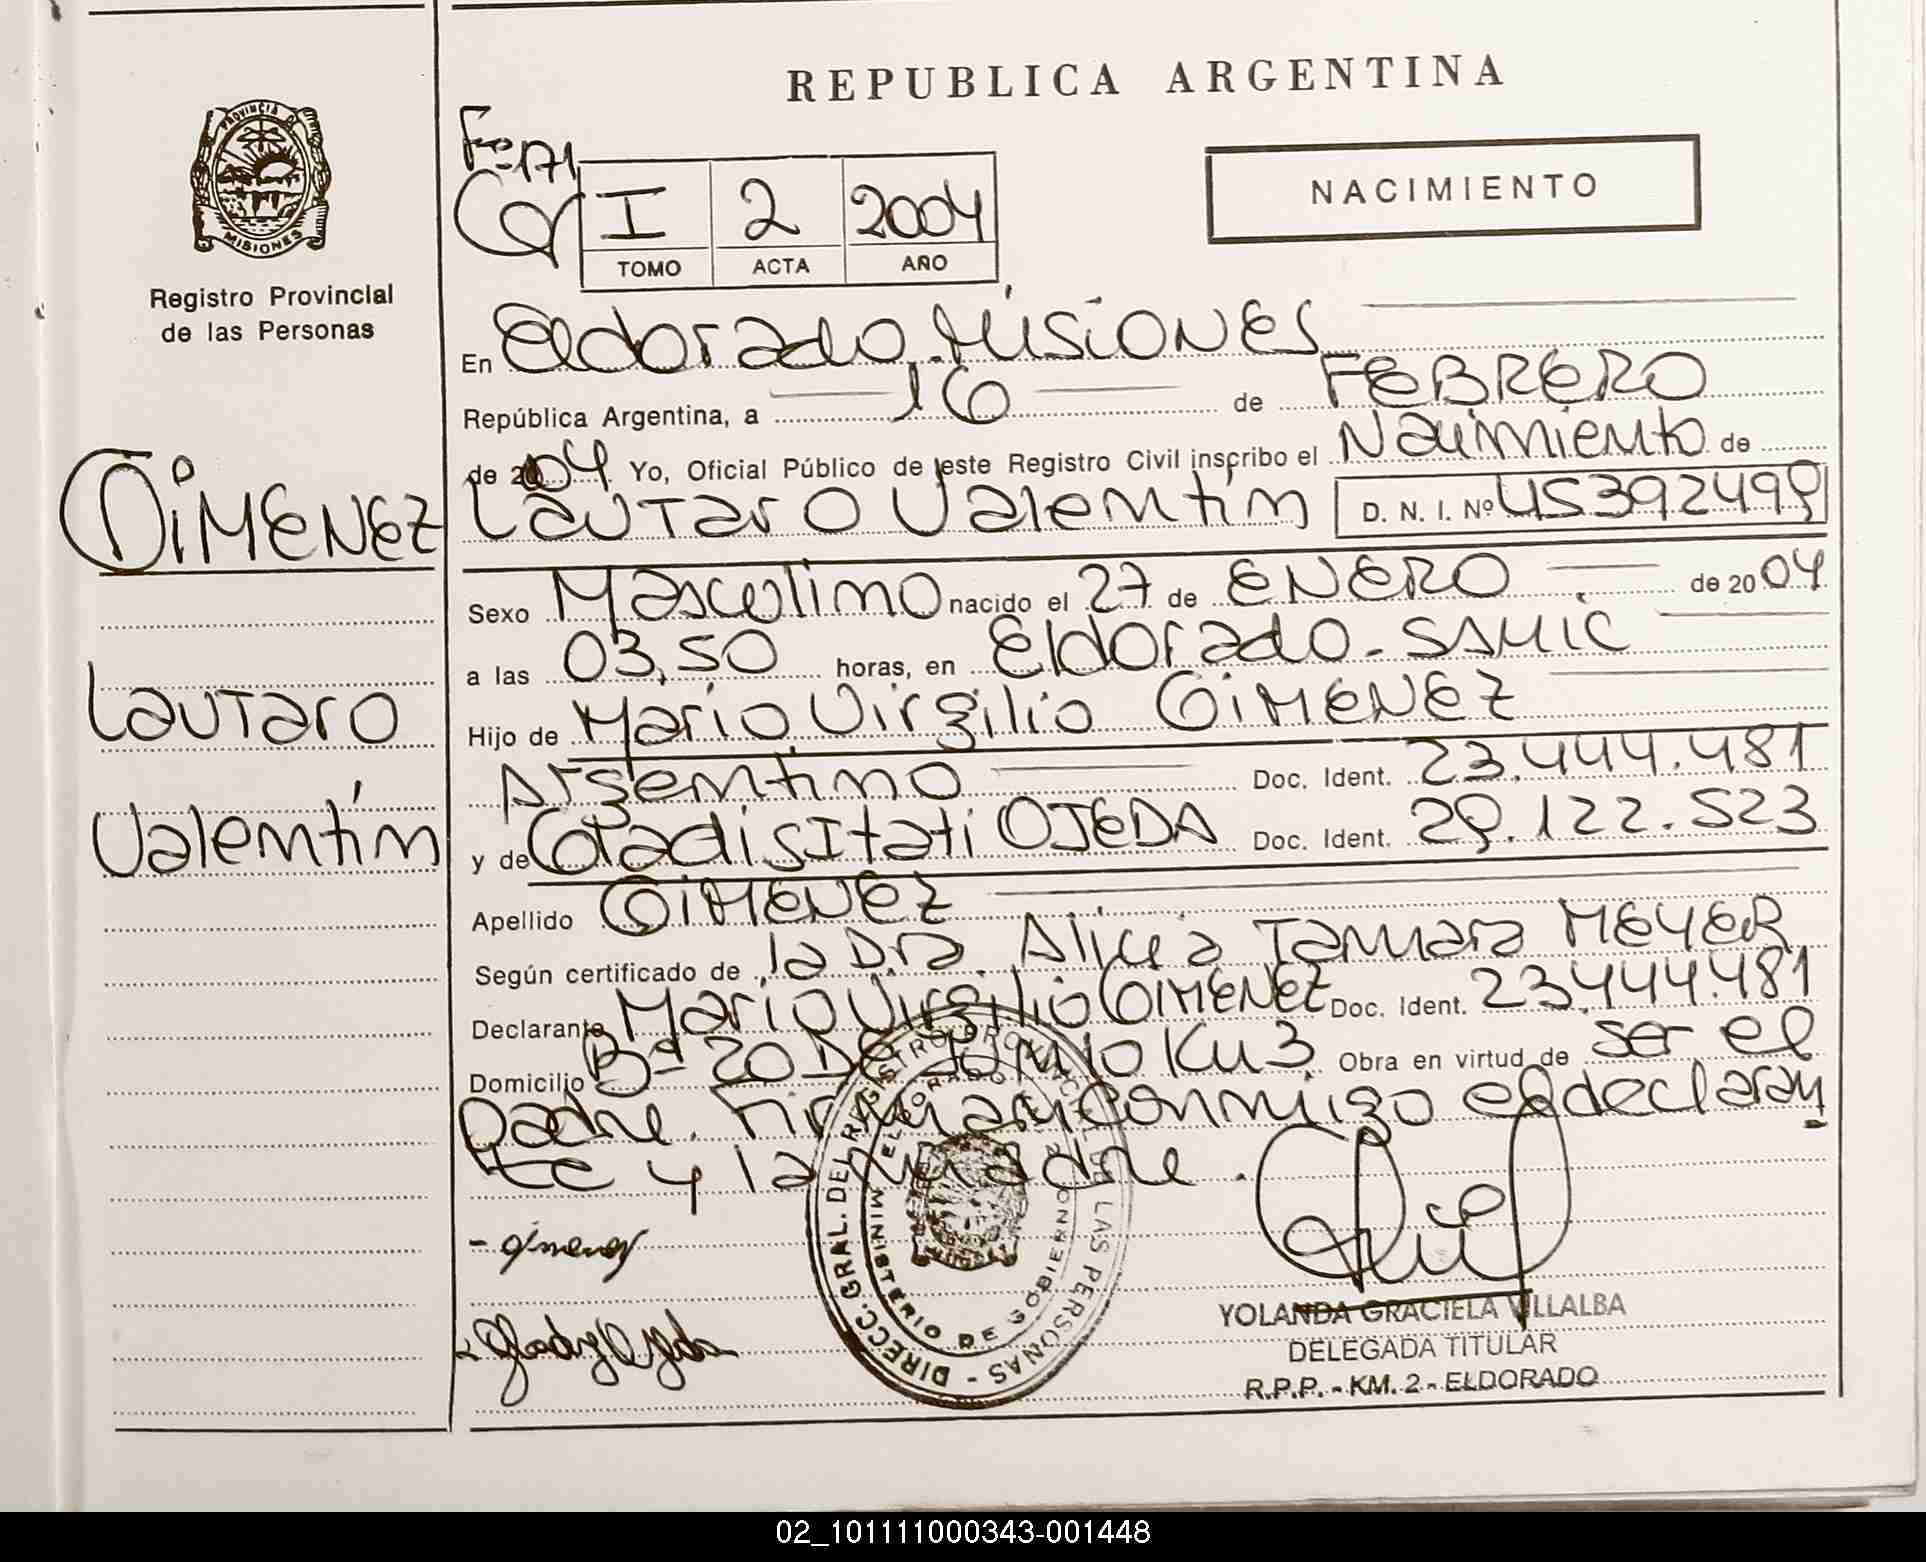 REPUBLICA ARGENTINA
PROVINCIA D
MISIONES
Registro Provincial
de las Personas
I 2 2004
TOMO ACTA AÑO
NACIMIENTO
En Eldorado, Misiones
República Argentina, a 16 de FEBRERO
de 2004 Yo, Oficial Público de este Registro Civil inscribo el Nacimiento de
Lautaro Valentín D. N. I. Nº
GIMENEZ
Lautaro
Valentín
Sexo Masculino nacido el 27 de ENERO de 2004
a las 03,50 horas, en Eldorado - SAMIC
Hijo de Mario Virgilio GIMENEZ
Argentino Doc. Ident. 23.444.481
y de Itati OJEDA Doc. Ident. 29.122.523
Apellido GIMENEZ
Según certificado de la Dra. Alicia Tamara MEYER
Declarante Mario Virgilio GIMENEZ Doc. Ident. 23.444.481
Domicilio Bº 20 De Junio Km 3 Obra en virtud de ser el
padre. Firman conmigo el declaran
te y la madre.
- Gimenez
Gladys Ojeda
DIRECC. GRAL. DEL REGISTRO PROVINCIAL DE LAS PERSONAS -
MINISTERIO DE GOBIERNO
ELDORADO
YOLANDA GRACIELA VILLALBA
DELEGADA TITULAR
R.P.P. - KM. 2 - ELDORADO
02_101111000343-001448